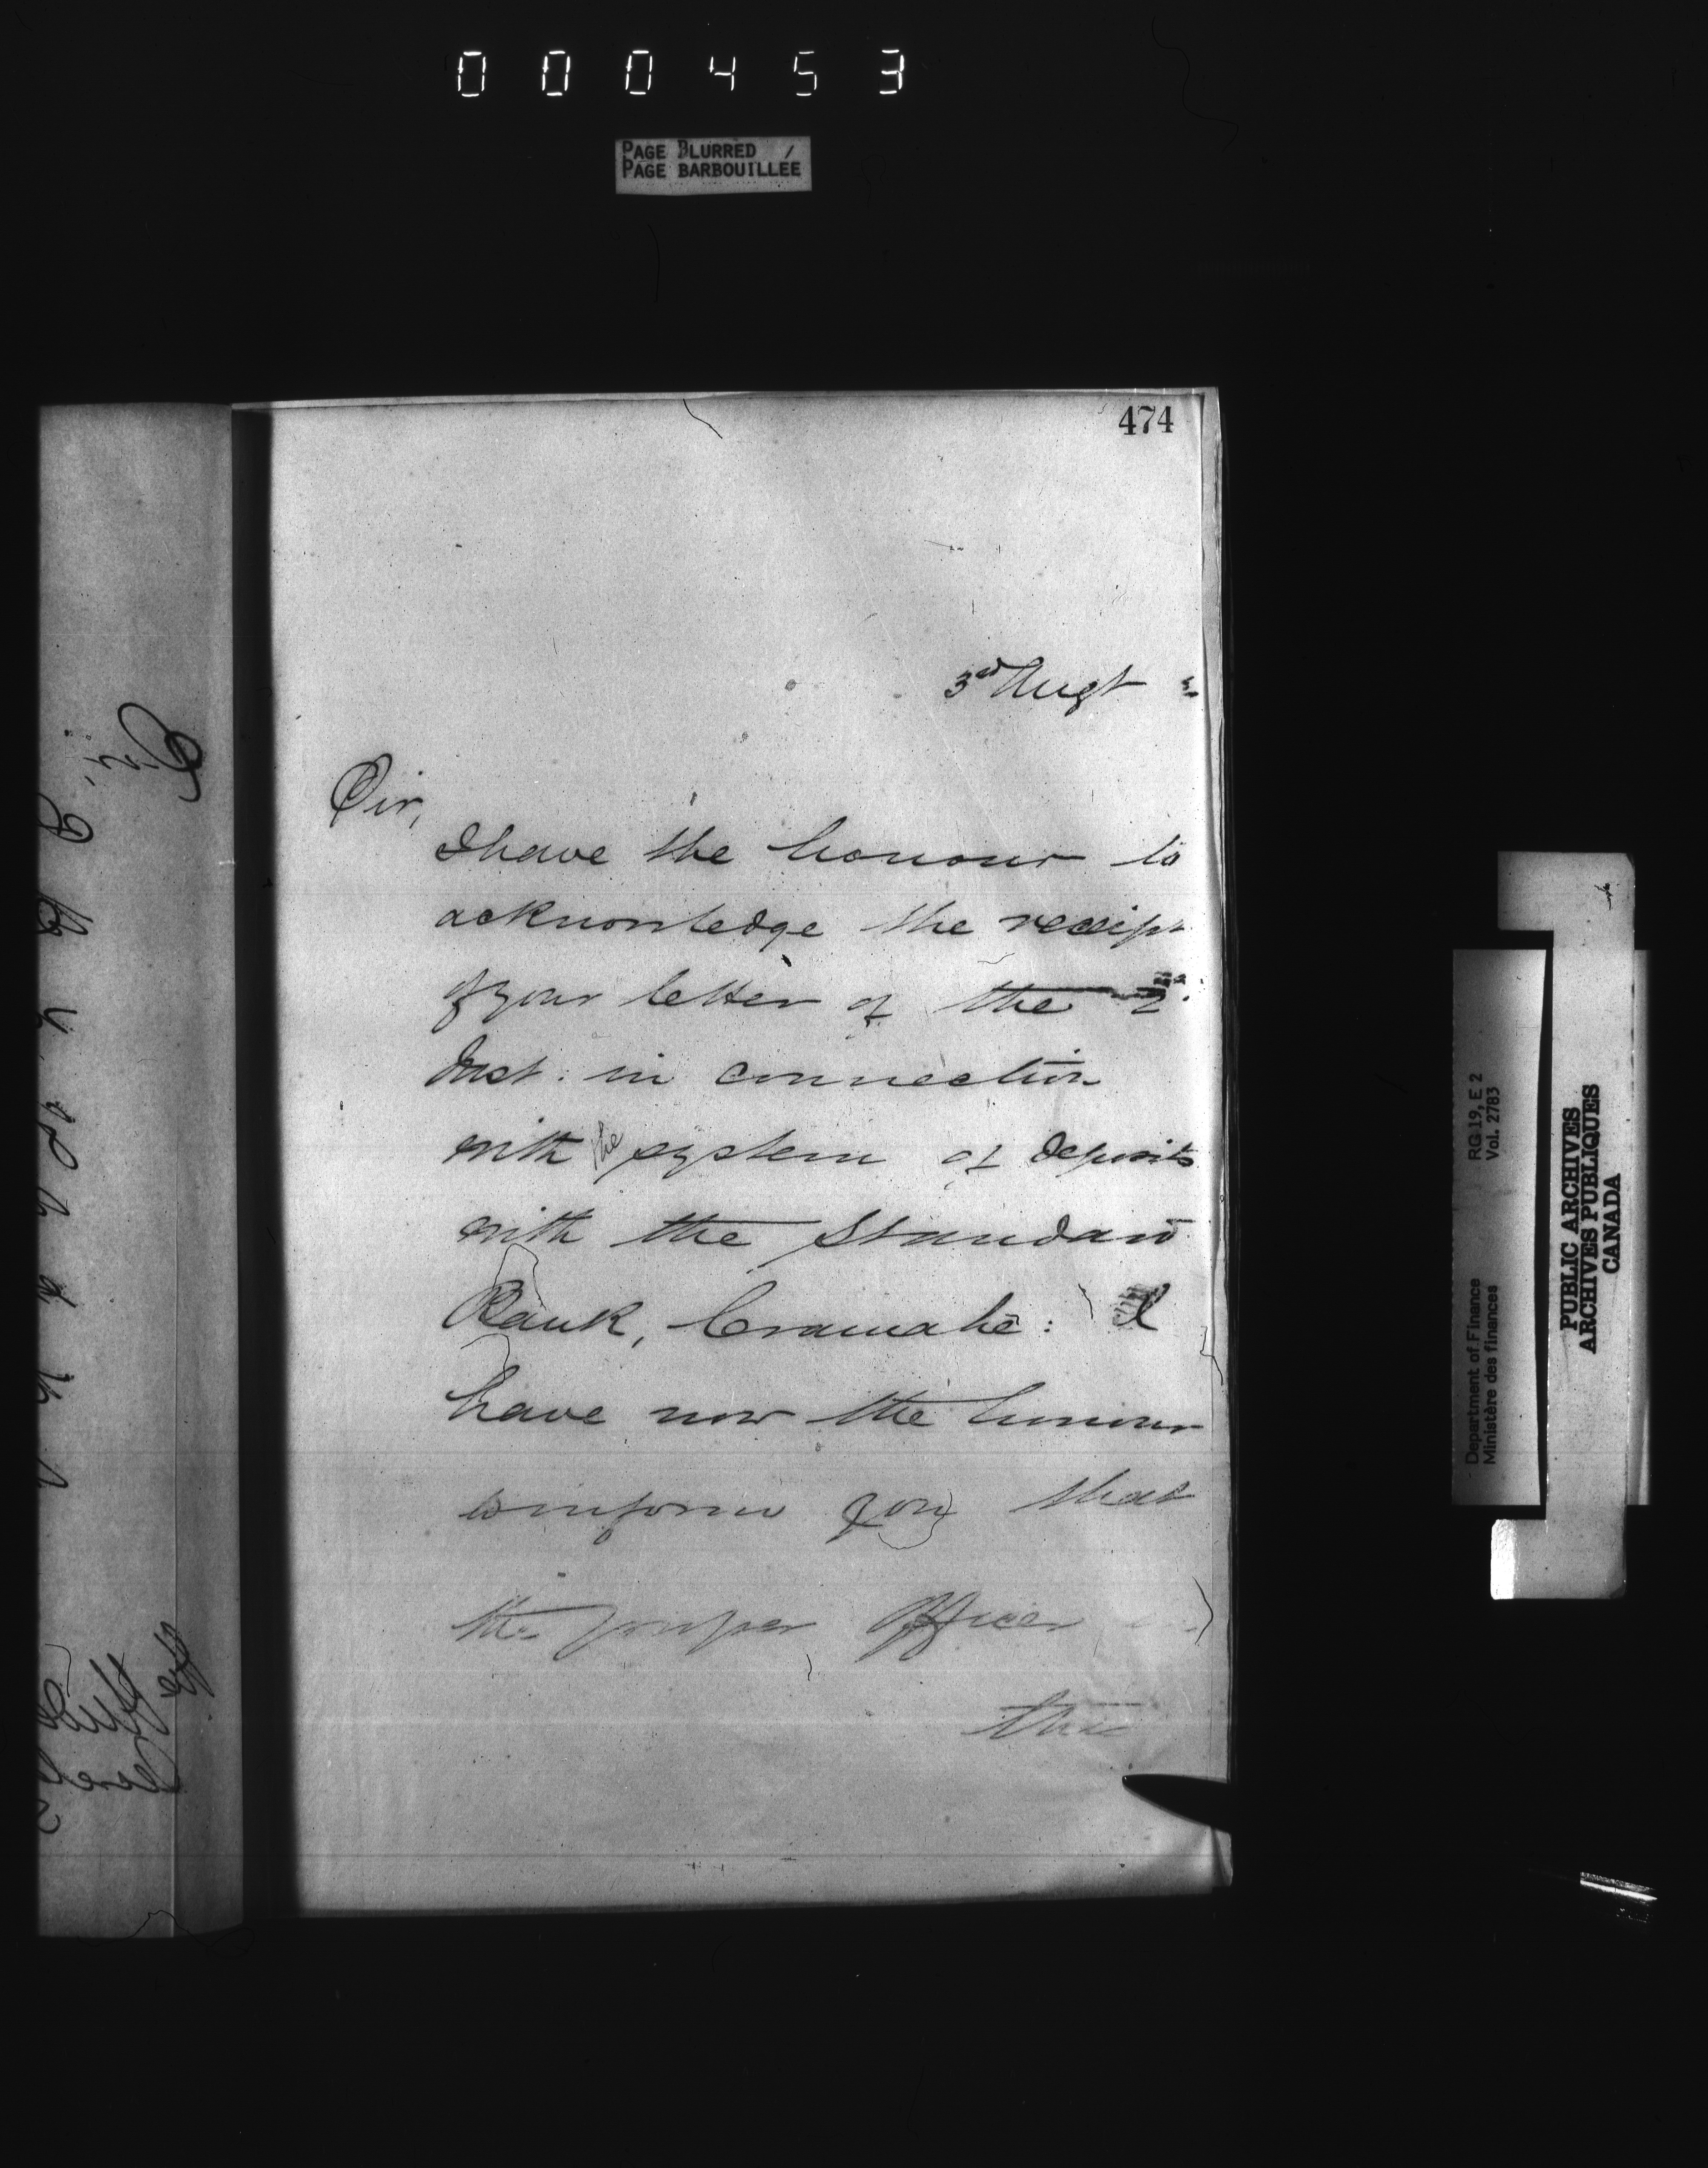 000453
PAGE BLURRED
PAGE BARBOUILLÉE
474
3rd Augt
Sir,
I have the honour to
acknowledge the receipt
of your letter of the 2
Inst. in connection
with the system of deposits
with the Standard
Bank, Cramahe: I
have now the honour
to inform you that
the proper Officer
this
Department of Finance
Ministère des finances
RG 19, E 2
Vol. 2783
PUBLIC ARCHIVES
ARCHIVES PUBLIQUES
CANADA